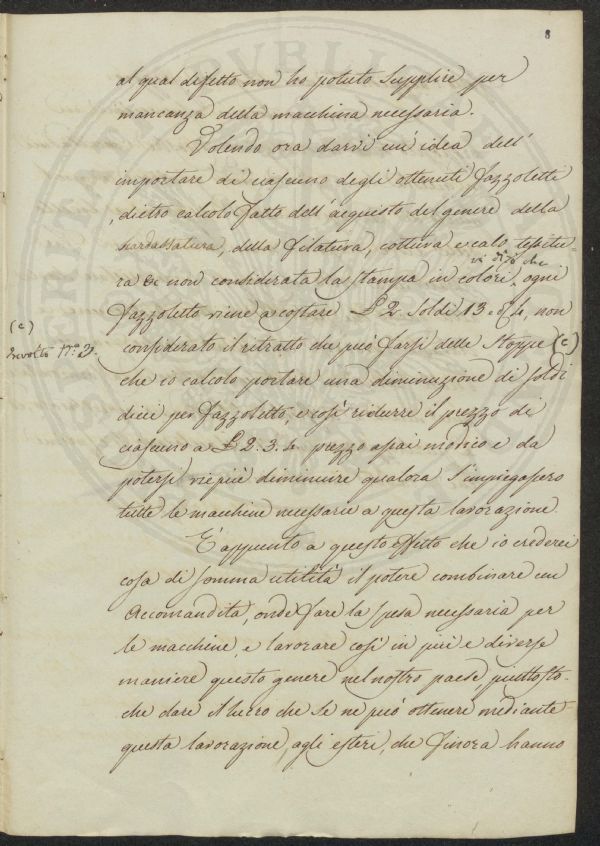 8
al qual difetto non ho potuto supplire per
mancanza della macchina necessaria.
Volendo ora darvi un' idea dell'
importare di ciascuno degli ottenuti Fazzoletti
, dietro calcolo fatto dell' acquisto del genere della
, della filatura, cottura e calo, tessitu-
ra e non considerata la stampa in colori, ogni
vi dirò che
Fazzoletto viene a costare £ 2 Soldi 13. d. 4, non
(c)
Involto N.° 3.
considerato il ritratto che può farsi delle Stoppe (c)
che io calcolo portare una diminuzione di soldi
dieci per Fazzoletto, e così ridurre il prezzo di
ciascuno a £ 2. 3. 4. prezzo assai modico e da
potersi vie più diminuire qualora s'impiegassero
tutte le macchine necessarie a questa lavorazione.
È appunto a questo effetto che io crederei
cosa di somma utilità il potere combinare un
Accomandita, onde fare la spesa necessaria per
le macchine, e lavorare così in più e diverse
maniere questo genere nel nostro paese, piuttosto-
che dare il lucro che se ne può ottenere mediante
questa lavorazione, agli esteri, che finora hanno